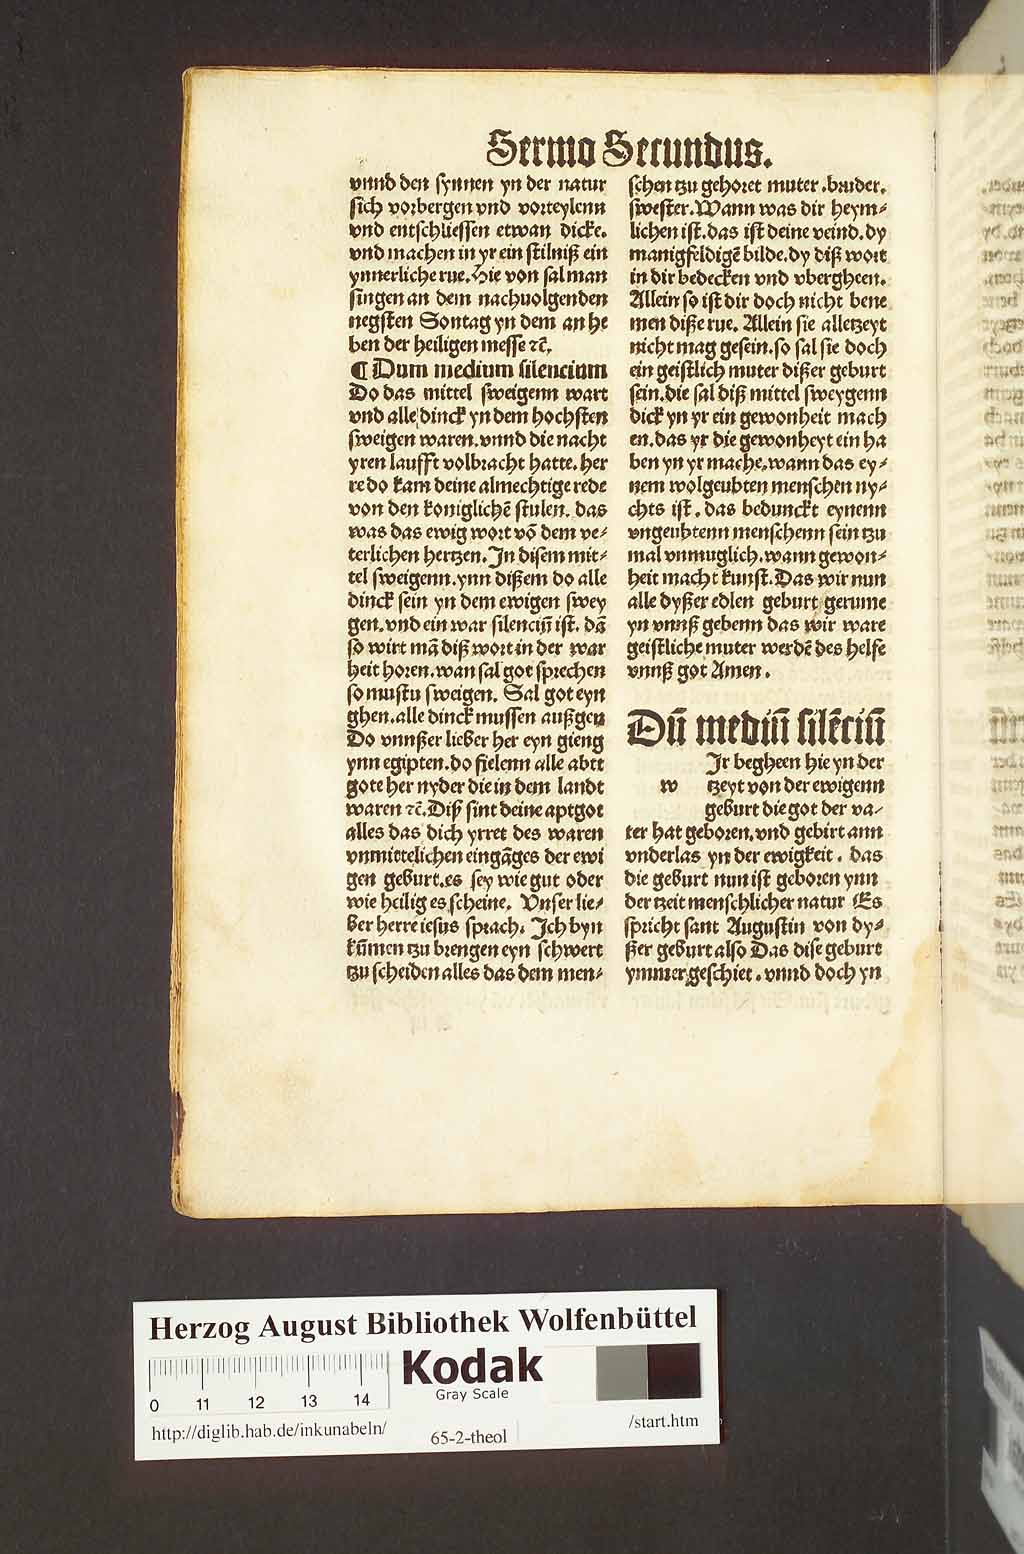 Sermo Secundus.
vnnd den synnen yn der natur
sich vorbergen vnd vorteylenn
vnd entschliessen etwan dicke.
vnd machen in yr ein stilniß ein
ynnerliche rue. Hie von sal man
singen an dem nachuolgenden
negsten Sontag yn dem an he
ben der heiligen messe ⁊c̄.
¶ Dum medium silencium
Do das mittel sweigenn wart
vnd alle dinck yn dem hochsten
sweigen waren. vnnd die nacht
yren laufft volbracht hatte. her
re do kam deine almechtige rede
von den koniglichē stulen. das
was das ewig wort vō dem ve⸗
terlichen hertzen. In disem mit⸗
tel sweigenn. ynn dißem do alle
dinck sein yn dem ewigen swey
gen. vnd ein war silenciū ist. dā
so wirt mā diß wort in der war
heit horen. wan sal got sprechen
so mustu sweigen. Sal got eyn
ghen. alle dinck mussen außgen
Do vnnßer lieber her eyn gieng
ynn egipten. do fielenn alle abtt
gote her nyder die in dem landt
waren ⁊c̄. Diß sint deine aptgot
alles das dich yrret des waren
vnmittelichen eingāges der ewi
gen geburt. es sey wie gut oder
wie heilig es scheine. Vnser lie⸗
ber herre iesus sprach. Ich byn
kūmen tzu brengen eyn schwert
tzu scheiden alles das dem men⸗
schen tzu gehoret muter. bruder.
swester. Wann was dir heym⸗
lichen ist. das ist deine veind. dy
manigfeldigē bilde. dy diß wort
in dir bedecken vnd vbergheen.
Allein so ist dir doch nicht bene
men diße rue. Allein sie alletzeyt
nicht mag gesein. so sal sie doch
ein geistlich muter dißer geburt
sein. die sal diß mittel sweygenn
dick yn yr ein gewonheit mach
en. das yr die gewonheyt ein ha
ben yn yr mache. wann das ey⸗
nem wolgeubten menschen ny⸗
chts ist. das bedunckt eynenn
vngeubtenn menschenn sein tzu
mal vnmuglich. wann gewon⸗
heit macht kunst. Das wir nun
alle dyßer edlen geburt gerume
yn vnnß gebenn das wir ware
geistliche muter werdē des helfe
vnnß got Amen.
Dū mediū silēciū
Ir begheen hie yn der
w tzeyt von der ewigenn
geburt die got der va⸗
ter hat geboren. vnd gebirt ann
vnderlas yn der ewigkeit. das
die geburt nun ist geboren ynn
der tzeit menschlicher natur Es
spricht sant Augustin von dy⸗
ßer geburt also Das dise geburt
ymmer geschiet. vnnd doch yn
Herzog August Bibliothek Wolfenbüttel
Kodak
Gray Scale
0 11 12 13 14
http://diglib.hab.de/inkunabeln/ 65-2-theol /start.htm